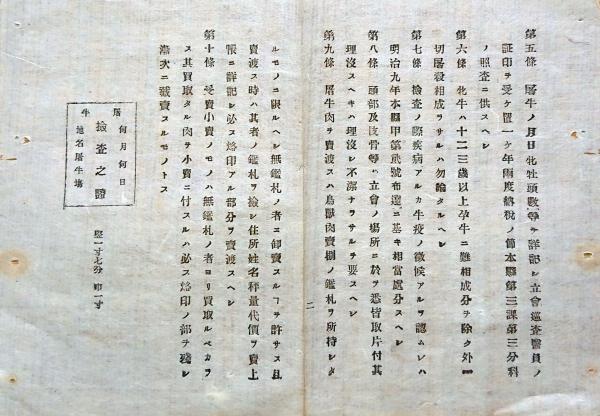 第五條　屠牛ノ月日牝牡頭數等ヲ詳記シ立會巡査醫員ノ
証印ヲ受ケ置一ケ年兩度納稅ノ節本縣第三課第三分科
ノ照査ニ供スヘシ
第六條　牝牛ハ十二三歲以上孕牛ニ難相成分ヲ除ク外一
切屠殺相成ヲサルハ勿論タルヘシ
第七條　撿查ノ際疾病アルカ牛疫ノ徵候アルヲ認ムレハ
明治九年本縣甲第貳號布達ニ基キ相當處分スヘシ
第八條　頭部及皮骨等ハ立會ノ場所ニ於ヲ悉皆取片付其
埋沒スヘキハ埋沒シ不潔ナラサルヲ要スヘシ
第九條　屠牛肉ヲ賣渡スハ鳥獸肉賣捌ノ鑑札ヲ所持シタ
二
ルモノニ限ルヘシ無鑑札ノ者ニ卸賣スルヿヲ許サス且
賣渡ス時ハ其者ノ鑑札ヲ撿シ住所姓名秤量代價ヲ賣上
帳ニ詳記シ必ス烙印アル部分ヲ賣渡スヘシ
第十條　受賣小賣ノモノハ無鑑札ノ者ヨリ買取ルベカラ
ス其買取タル肉ヲ小賣ニ付スルハ必ス烙印ノ部ヲ殘シ
漸次ニ截賣スルモノトス
何月何日
撿查之證
地名屠牛場
屠牛
竪一寸七分　巾一寸